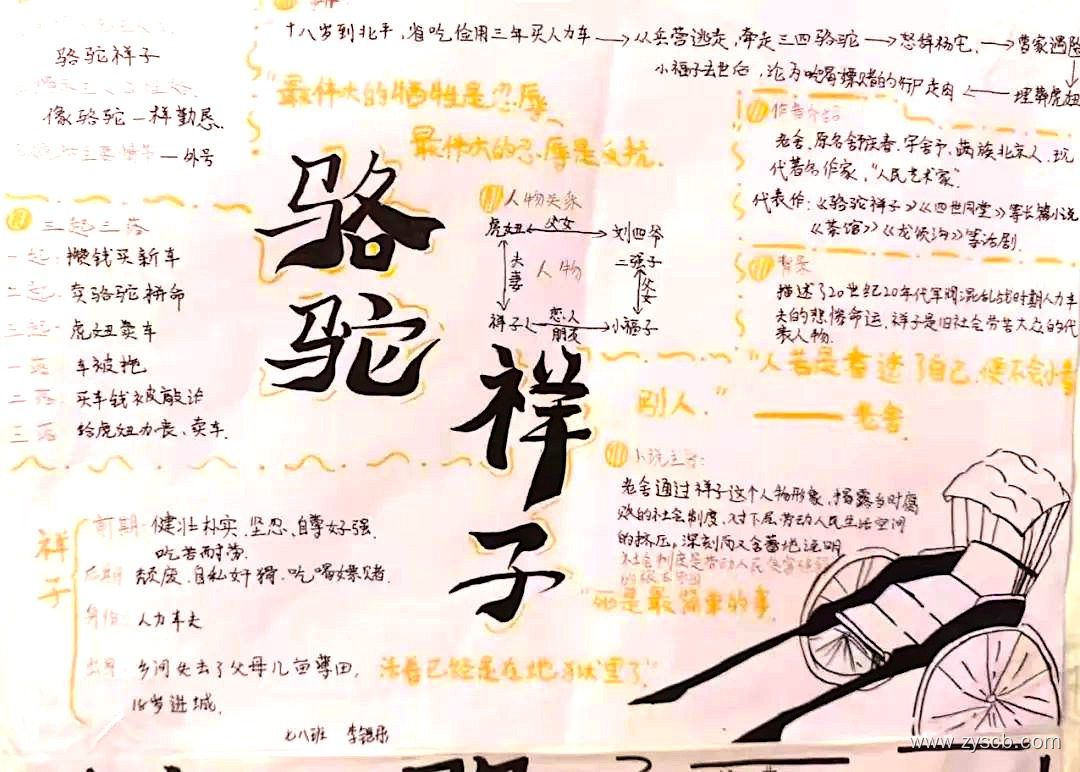 骆驼祥子
像骆驼一样勤恳
外号
十八岁到北平,省吃俭用三年买人力车→从兵营逃走,牵走三四骆驼→怒辞杨宅,→曹家遇险
小福子去世后,沦为吃喝嫖赌的行尸走肉←埋葬虎妞
"最伟大的牺牲是忍辱,
最伟大的忍辱是反抗.
三起三落
一起:攒钱买新车
二起:卖骆驼拼命
三起:虎妞卖车
一落:车被拖
二落:买车钱被敲诈
三落:给虎妞办丧、卖车.
骆
驼
祥
子
人物关系
虎妞 父女 刘四爷
夫妻 人物 二强子
父女
祥子 恋人 朋友 小福子
作者介绍
老舍,原名舒庆春,字舍予,满族北京人,现
代著名作家,"人民艺术家".
代表作:《骆驼祥子》《四世同堂》等长篇小说
《茶馆》《龙须沟》等话剧.
背景
描述了20世纪20年代军阀混乱战时期人力车
夫的悲惨命运.祥子是旧社会劳苦大众的代
表人物.
"人若是看透了自己,便不会小看
别人." —— 老舍
小说主旨:
老舍通过祥子这个人物形象,揭露当时腐
败的社会制度,对下层劳动人民生活空间
的挤压,深刻而又含蓄地说明
社会制度是劳动人民
"死是最简单的事,
活着已经是在地狱里了"
祥子
前期:健壮朴实、坚忍、自尊好强、
吃苦耐劳.
后期:颓废、自私奸猾、吃喝嫖赌.
身份:人力车夫
出身:乡间失去了父母几亩薄田,
18岁进城.
七八班
www.zyscb.com